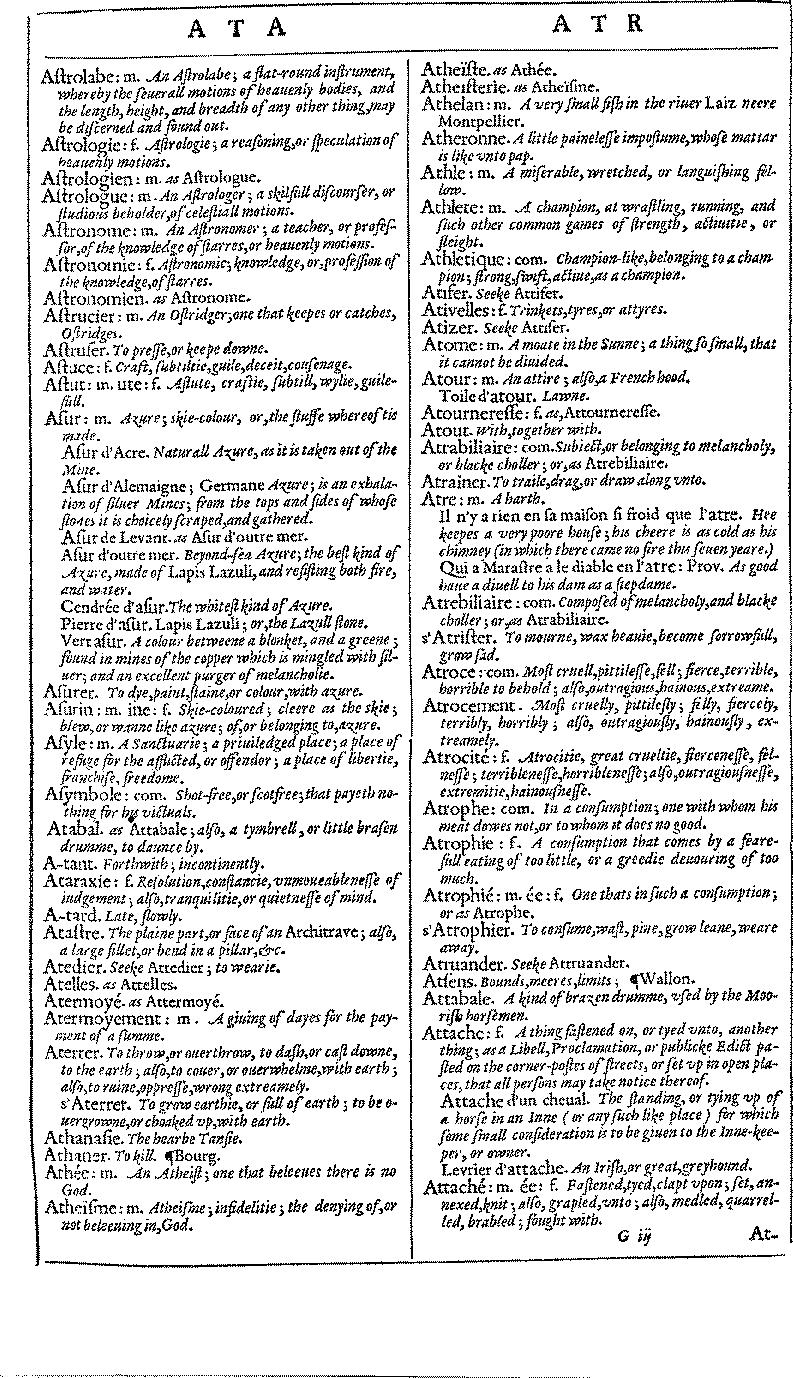 A T A
Aſtrolabe: m. An Aſtrolabe; a flat-round inſtrument,
whereby the ſeuerall motions of heauenly bodies, and
the length, height, and breadth of any other thing, may
be diſcerned and found out.
Aſtrologie: f. Aſtrologie; a reaſoning, or ſpeculation of
heauenly motions.
Aſtrologien: m. as Aſtrologue.
Aſtrologue: m. An Aſtrologer; a skilfull diſcourſer, or
ſtudious beholder, of celeſtiall motions.
Aſtronome: m. An Aſtronomer; a teacher, or profeſ-
ſor, of the knowledge of ſtarres, or heauenly motions.
Aſtronomie: f. Aſtronomie; knowledge, or, profeſſion of
the knowledge, of ſtarres.
Aſtronomien. as Aſtronome.
Aſtrucier: m. An Oſtridger; one that keepes or catches,
Oſtridges.
Aſtruſer. To preſſe, or keepe downe.
Aſtuce: f. Craft, ſubtiltie, guile, deceit, couſenage.
Aſtut: m. ute: f. Aſtute, craftie, ſubtill, wylie, guile-
full.
Aſur: m. Azure; skie-colour, or, the ſtuffe whereof tis
made.
Aſur d'Acre. Naturall Azure, as it is taken out of the
Mine.
Aſur d'Alemaigne; Germane Azure; is an exhala-
tion of ſiluer Mines; from the tops and ſides of whoſe
ſtones it is choicely ſcraped, and gathered.
Aſur de Levant. as Aſur d'outre mer.
Aſur d'outre mer. Beyond-ſea Azure; the beſt kind of
Azure, made of Lapis Lazuli, and reſiſting both fire,
and water.
Cendrée d'aſur. The whiteſt kind of Azure.
Pierre d'aſur. Lapis Lazuli; or, the Lazull ſtone.
Vert aſur. A colour betweene a blonket, and a greene;
found in mines of the copper which is mingled with ſil-
uer; and an excellent purger of melancholie.
Aſurer. To dye, paint, ſtaine, or colour, with azure.
Aſurin: m. ine: f. Skie-coloured; cleere as the skie;
blew, or wanne like azure; of, or belonging to, azure.
Aſyle: m. A Sanctuarie; a priuiledged place; a place of
refuge for the afflicted, or offendor; a place of libertie,
franchiſe, freedome.
Aſymbole: com. Shot-free, or ſcotfree; that payeth no-
thing for his victuals.
Atabal. as Attabale; alſo, a tymbrell, or little braſen
drumme, to daunce by.
A-tant. Forthwith; incontinently.
Ataraxie: f. Reſolution, conſtancie, vnmoueableneſſe of
iudgement; alſo, tranquilitie, or quietneſſe of mind.
A-tard. Late, ſlowly.
Ataſtre. The plaine part, or face of an Architrave; alſo,
a large fillet, or bend in a pillar, &c.
Atedier. Seeke Attedier; to wearie.
Atelles. as Attelles.
Atermoyé. as Attermoyé.
Atermoyement: m. A giuing of dayes for the pay-
ment of a ſumme.
Aterrer. To throw, or ouerthrow, to daſh, or caſt downe,
to the earth; alſo, to couer, or ouerwhelme, with earth;
alſo, to ruine, oppreſſe, wrong extreamely.
s'Aterrer. To grow earthie, or full of earth; to be o-
uergrowne, or choaked vp, with earth.
Athanaſie. The hearbe Tanſie.
Athaner. To kill. ¶Bourg.
Athée: m. An Atheiſt; one that beleeues there is no
God.
Atheiſme: m. Atheiſme; infidelitie; the denying of, or
not beleeuing in, God.
A T R
Atheïſte. as Athée.
Atheiſterie. as Atheïſme.
Athelan: m. A very ſmall fiſh in the riuer Laiz neere
Montpellier.
Atheronne. A little paineleſſe impoſtume, whoſe mattar
is like vnto pap.
Athle: m. A miſerable, wretched, or languiſhing fel-
low.
Athlete: m. A champion, at wraſtling, running, and
ſuch other common games of ſtrength, actiuitie, or
ſleight.
Athletique: com. Champion-like, belonging to a cham-
pion; ſtrong, ſwift, actiue, as a champion.
Atifer. Seeke Attifer.
Ativelles: f. Trinkets, tyres, or attyres.
Atizer. Seeke Attiſer.
Atome: m. A moate in the Sunne; a thing ſo ſmall, that
it cannot be diuided.
Atour: m. An attire; alſo, a French hood.
Toile d'atour. Lawne.
Atournereſſe: f. as, Attournereſſe.
Atout. With, together with.
Atrabiliaire: com. Subiect, or belonging to melancholy,
or blacke choller; or, as Atrebiliaire.
Atrainer. To traile, drag, or draw along vnto.
Atre: m. A harth.
Il n'y a rien en ſa maiſon ſi froid que l'atre. Hee
keepes a very poore houſe; his cheere is as cold as his
chimney (in which there came no fire this ſeuen yeare.)
Qui a Maraſtre a le diable en l'atre: Prov. As good
haue a diuell to his dam as a ſtepdame.
Atrebiliaire: com. Compoſed of melancholy, and blacke
choller; or, as Atrabiliaire.
s'Atriſter. To mourne, wax heauie, become ſorrowfull,
grow ſad.
Atroce: com. Moſt cruell, pittileſſe, fell; fierce, terrible,
horrible to behold; alſo, outragious, hainous, extreame.
Atrocement. Moſt cruelly, pittileſly; filly, fiercely,
terribly, horribly; alſo, outragiouſly, hainouſly, ex-
treamely.
Atrocité: f. Atrocitie, great crueltie, fierceneſſe, fel-
neſſe; terribleneſſe, horribleneſſe; alſo, outragiouſneſſe,
extremitie, hainouſneſſe.
Atrophe: com. In a conſumption; one with whom his
meat dowes not, or to whom it does no good.
Atrophie: f. A conſumption that comes by a feare-
full eating of too little, or a greedie deuouring of too
much.
Atrophié: m. ée: f. One thats in ſuch a conſumption;
or as Atrophe.
s'Atrophier. To conſume, waſt, pine, grow leane, weare
away.
Atruander. Seeke Attruander.
Atſens. Bounds, meeres, limits; ¶Wallon.
Attabale. A kind of brazen drumme, vſed by the Moo-
riſh horſemen.
Attache: f. A thing faſtened on, or tyed vnto, another
thing; as a Libell, Proclamation, or publicke Edict pa-
ſted on the corner-poſtes of ſtreets, or ſet vp in open pla-
ces, that all perſons may take notice thereof.
Attache d'un cheual. The ſtanding, or tying vp of
a horſe in an Inne (or any ſuch like place) for which
ſome ſmall conſideration is to be giuen to the Inne-kee-
per, or owner.
Levrier d'attache. An Iriſh, or great, greyhound.
Attaché: m. ée: f. Faſtened, tyed, clapt vpon; ſet, an-
nexed, knit; alſo, grapled, vnto; alſo, medled, quarrel-
led, brabled; fought with.
G iij At-